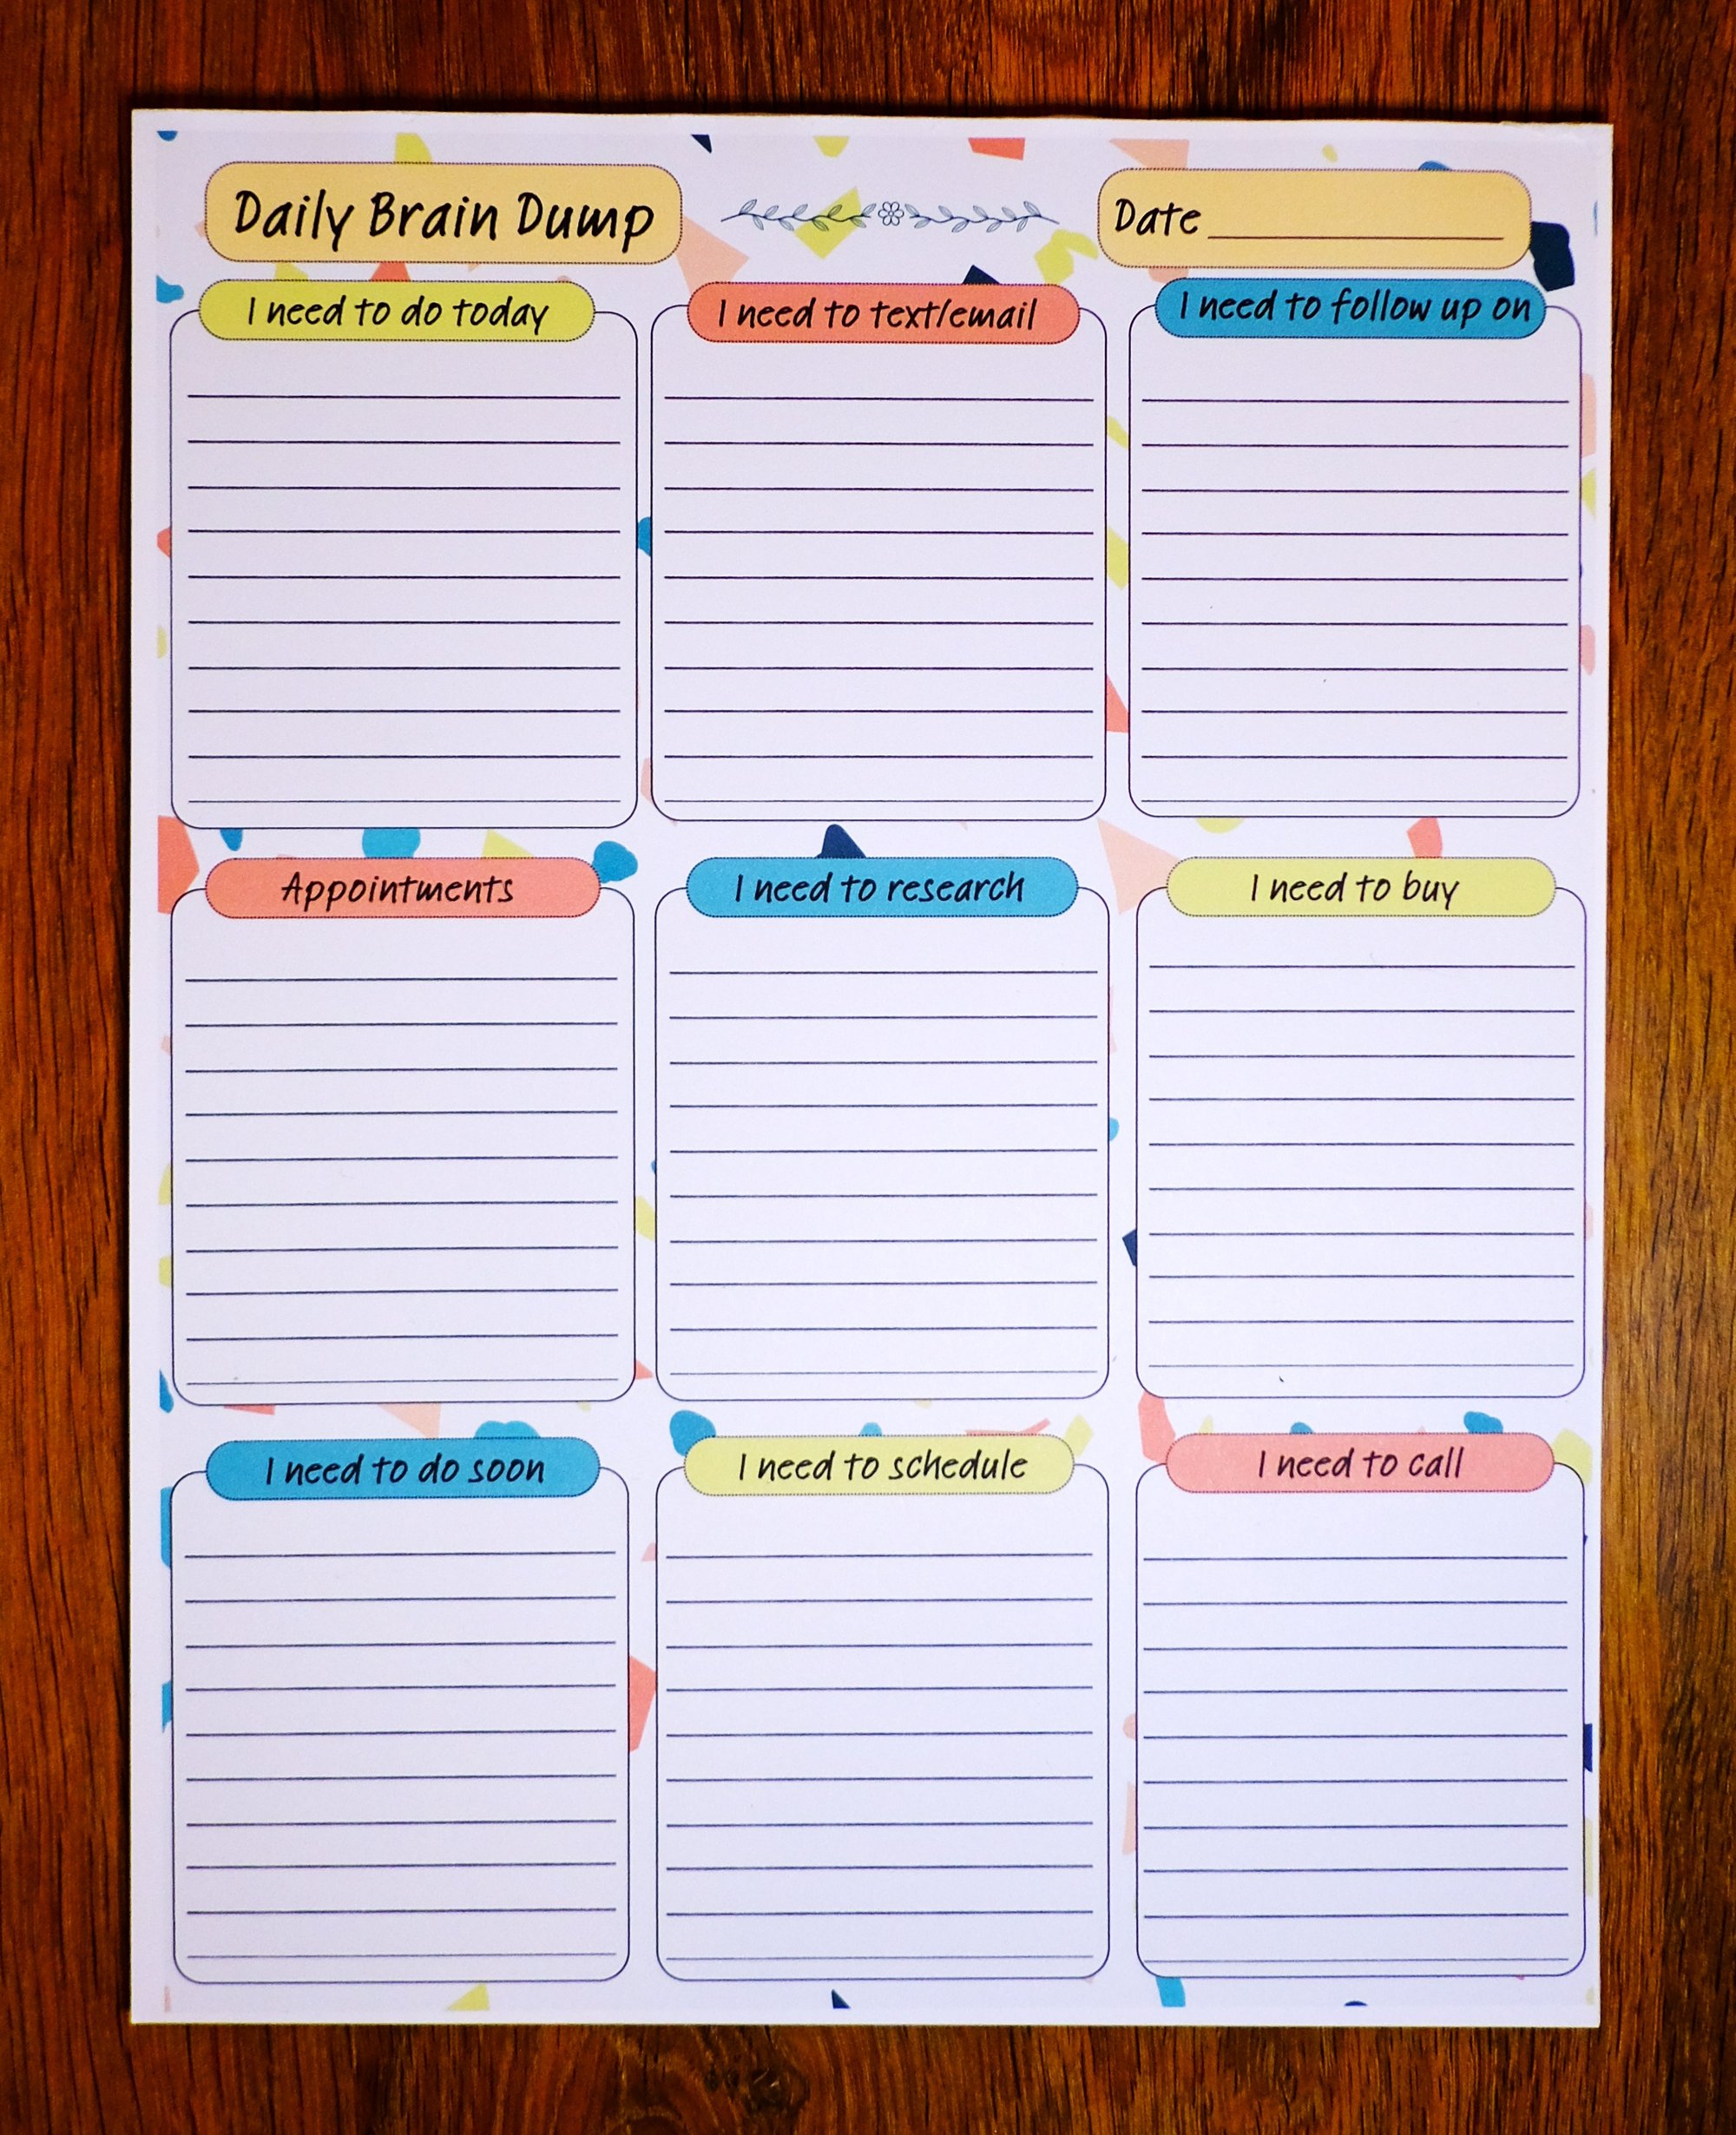 Daily Brain Dump
Date
I need to do today
I need to text/email
I need to follow up on
Appointments
I need to research
I need to buy
I need to do soon
I need to schedule
I need to call